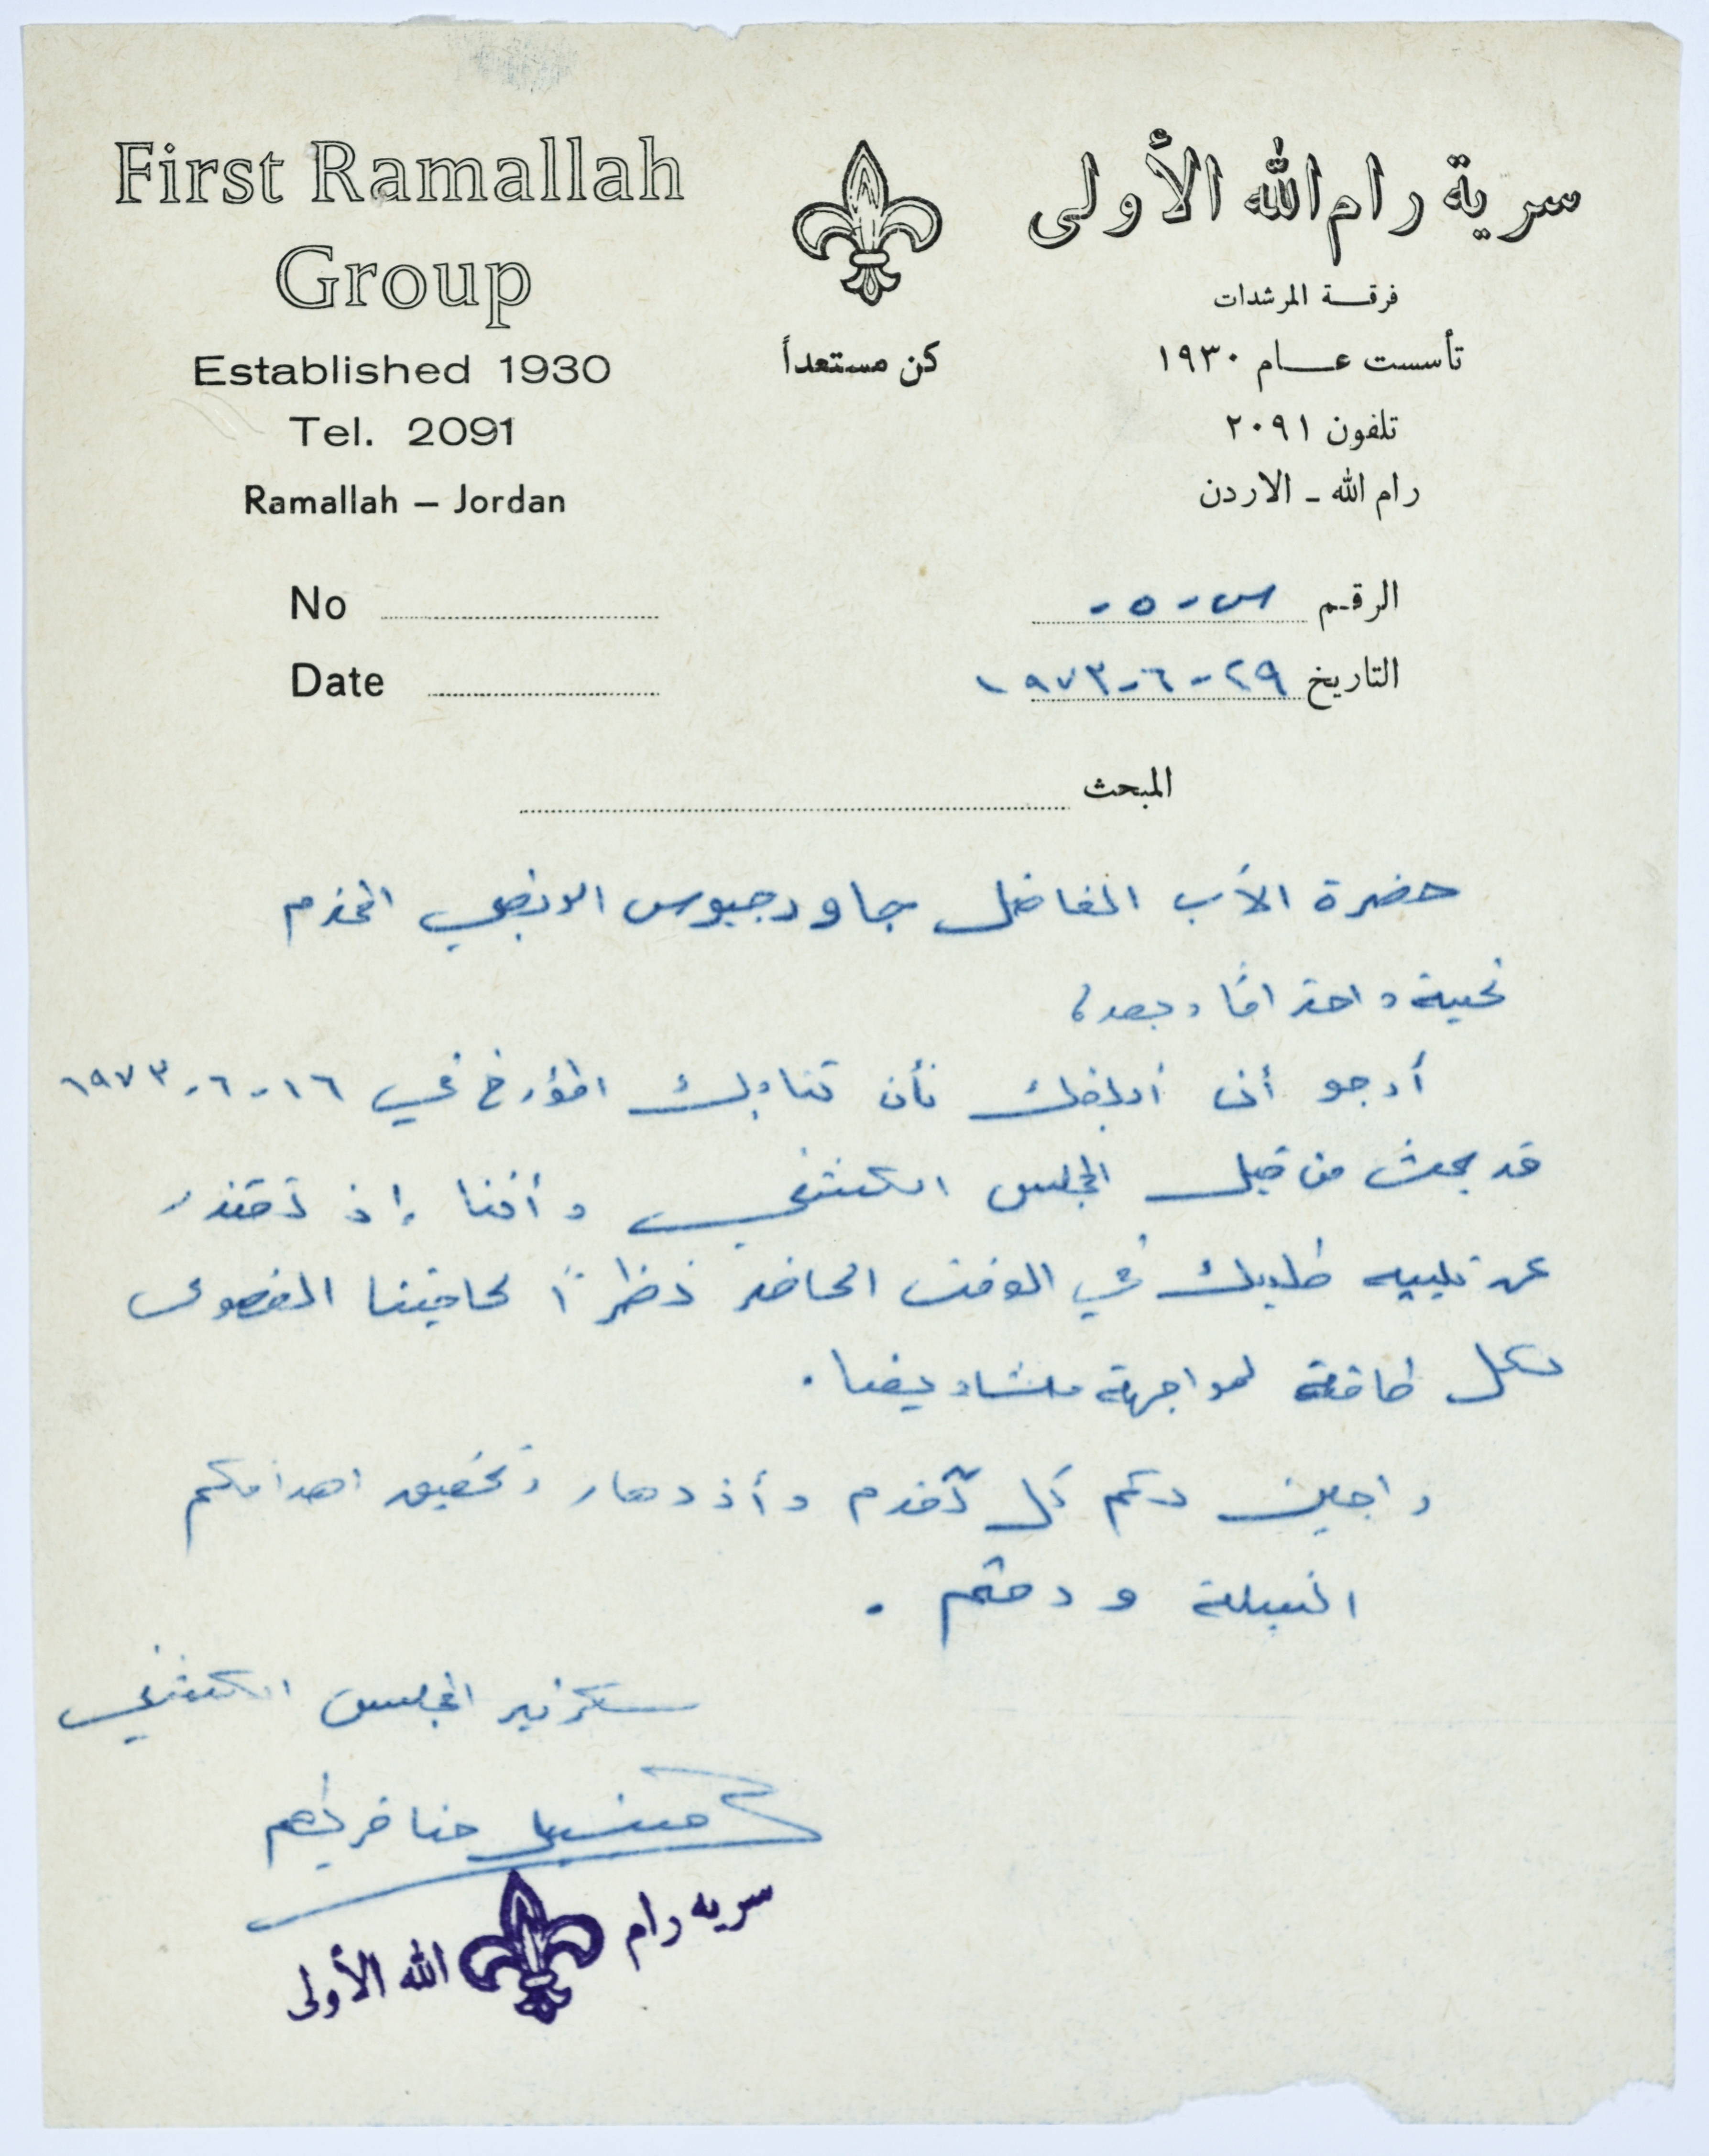 First Ramallah
Group
Established 1930
Tel. 2091
Ramallah – Jordan
No
Date
كن مستعداً
سرية رام الله الأولى
فرقة المرشدات
تأسست عام ١٩٣٠
تلفون ٢٠٩١
رام الله - الاردن
الرقم س - ٥ -
التاريخ ٢٩ - ٦ - ١٩٧٣
المبحث
حضرة الأب الفاضل جاورجيوس المحترم
تحية واحترامًا وبعد،
أرجو أن أبلغك بأن كتابك المؤرخ في ١٦ - ٦ - ١٩٧٣
قد بحث من قبل المجلس الكشفي وأننا إذ نعتذر
عن تلبيه طلبك في الوقت الحاضر نظرًا لحاجتنا القصوى
لكل طاقة لمواجهة مشاريعنا.
راجين لكم كل تقدم وأزدهار وتحقيق اهدافكم
النبيلة ودمتم.
سكرتير المجلس الكشفي
حنا
سريه رام الله الأولى